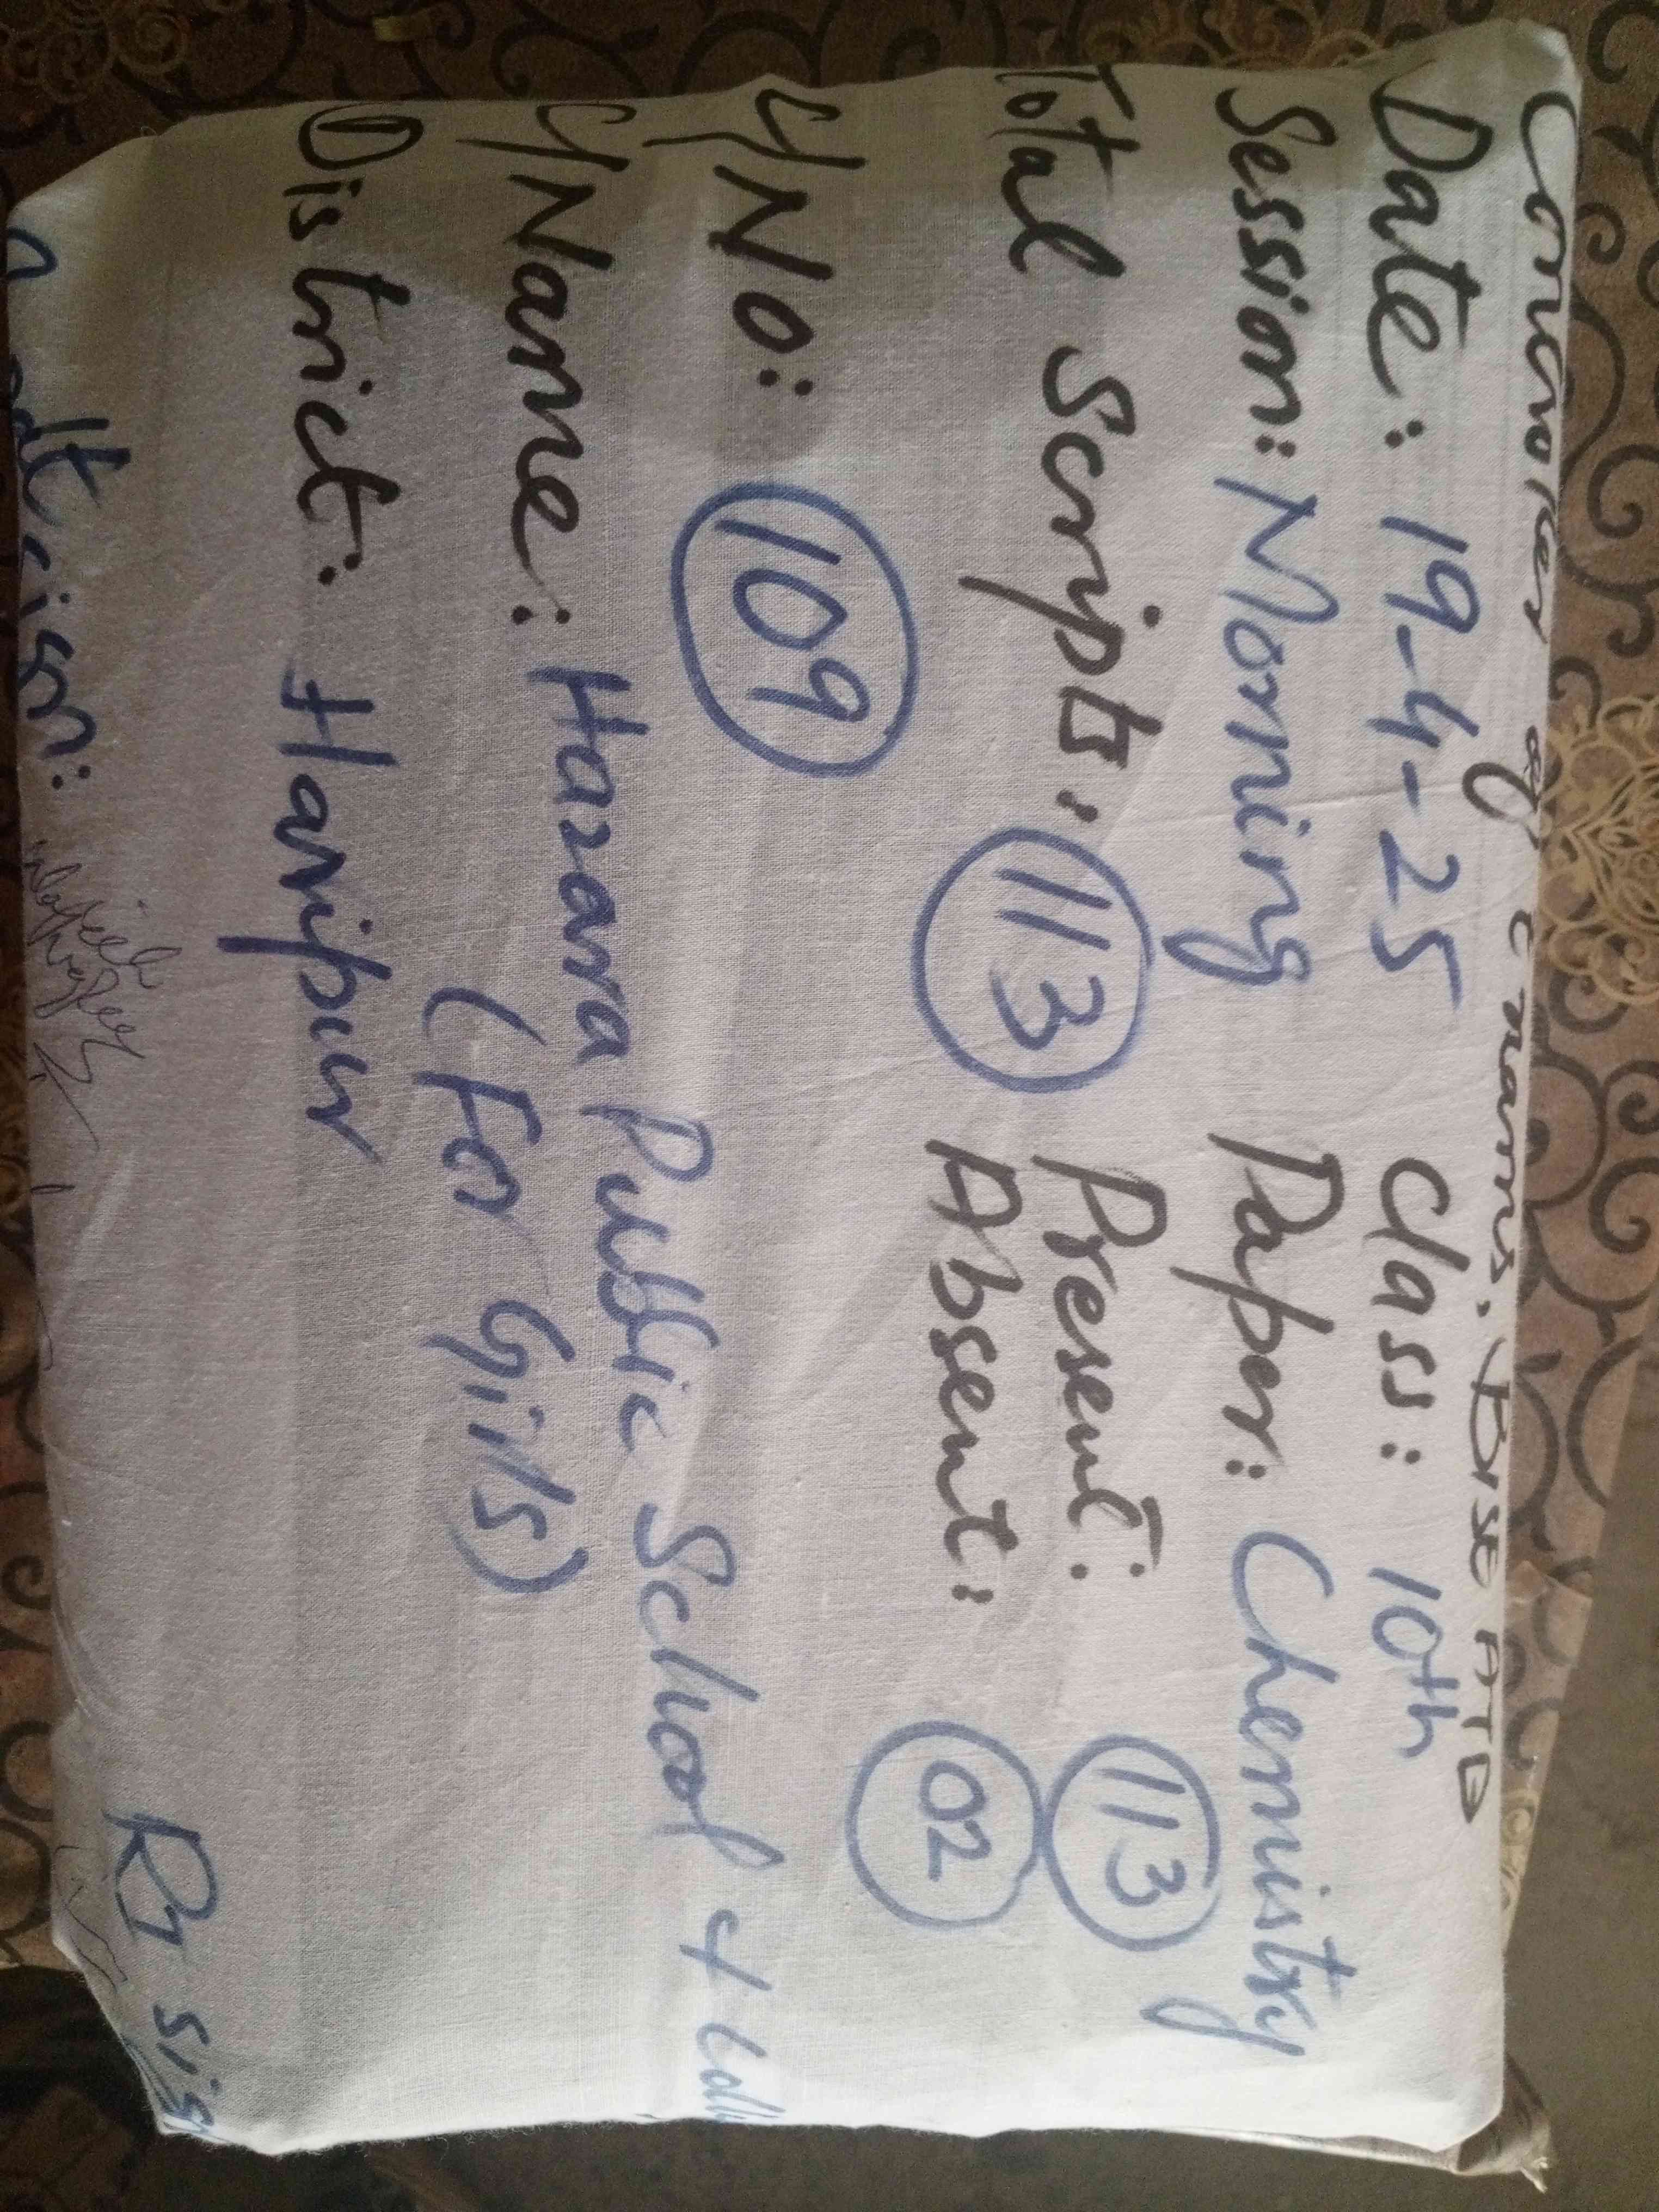 Controller of Exams. BISE ATD
Date: 19-4-25 Class: 10th
Session: Morning Paper: Chemistry
Total Scripts: 113 Present: 113
Absent: 02
C/NO: 109
C/Name: Hazara Public School & Coll
(For Girls)
District: Haripur
sign:
RI sig